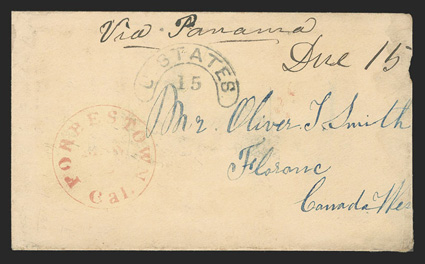 Via Panama
Due 15
U. STATES
15
Mr. Oliver T. Smith
FORBESTOWN
Cal.
Floranc
Canada Wes